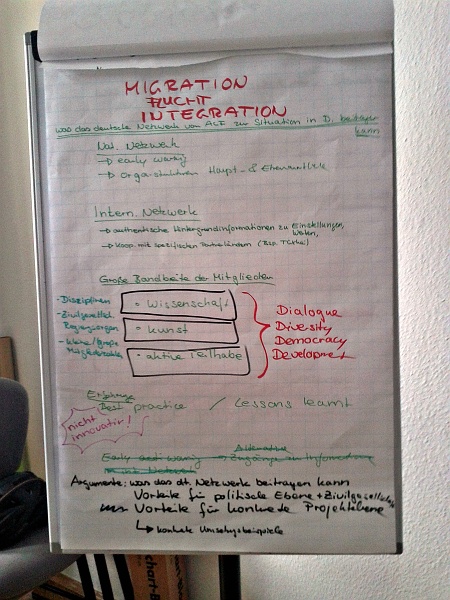 MIGRATION
FLUCHT
INTEGRATION
was das deutsche Netzwerk von ALF zur Situation in D. beitragen kann
Nat. Netzwerk
→ early warnig
→ orga-strukturen Haupt- &
Intern. Netzwerk
→ authentische Hintergrundinformationen zu Einstellungen,
→ koop. mit spezifischen Partnerländern (Bsp. Türkei)
Große Bandbeite der Mitglieder
- Disziplinen
- Zivilgesell.
-
• Wissenschaft
• Kunst
• aktive Teilhabe
Dialogue
Diversity
Democracy
Development
Erfahrung
Best practice / Lessons learnt
nicht innovativ!
Alternative
Early warnig → Zugänge an Information
Argumente: was das dt. Netzwerk beitragen kann
Vorteile für politische Ebene + Zivilgesellschaft
Vorteile für konkrete Projektebene
↳ konkrete Umsetzgsbeispiele